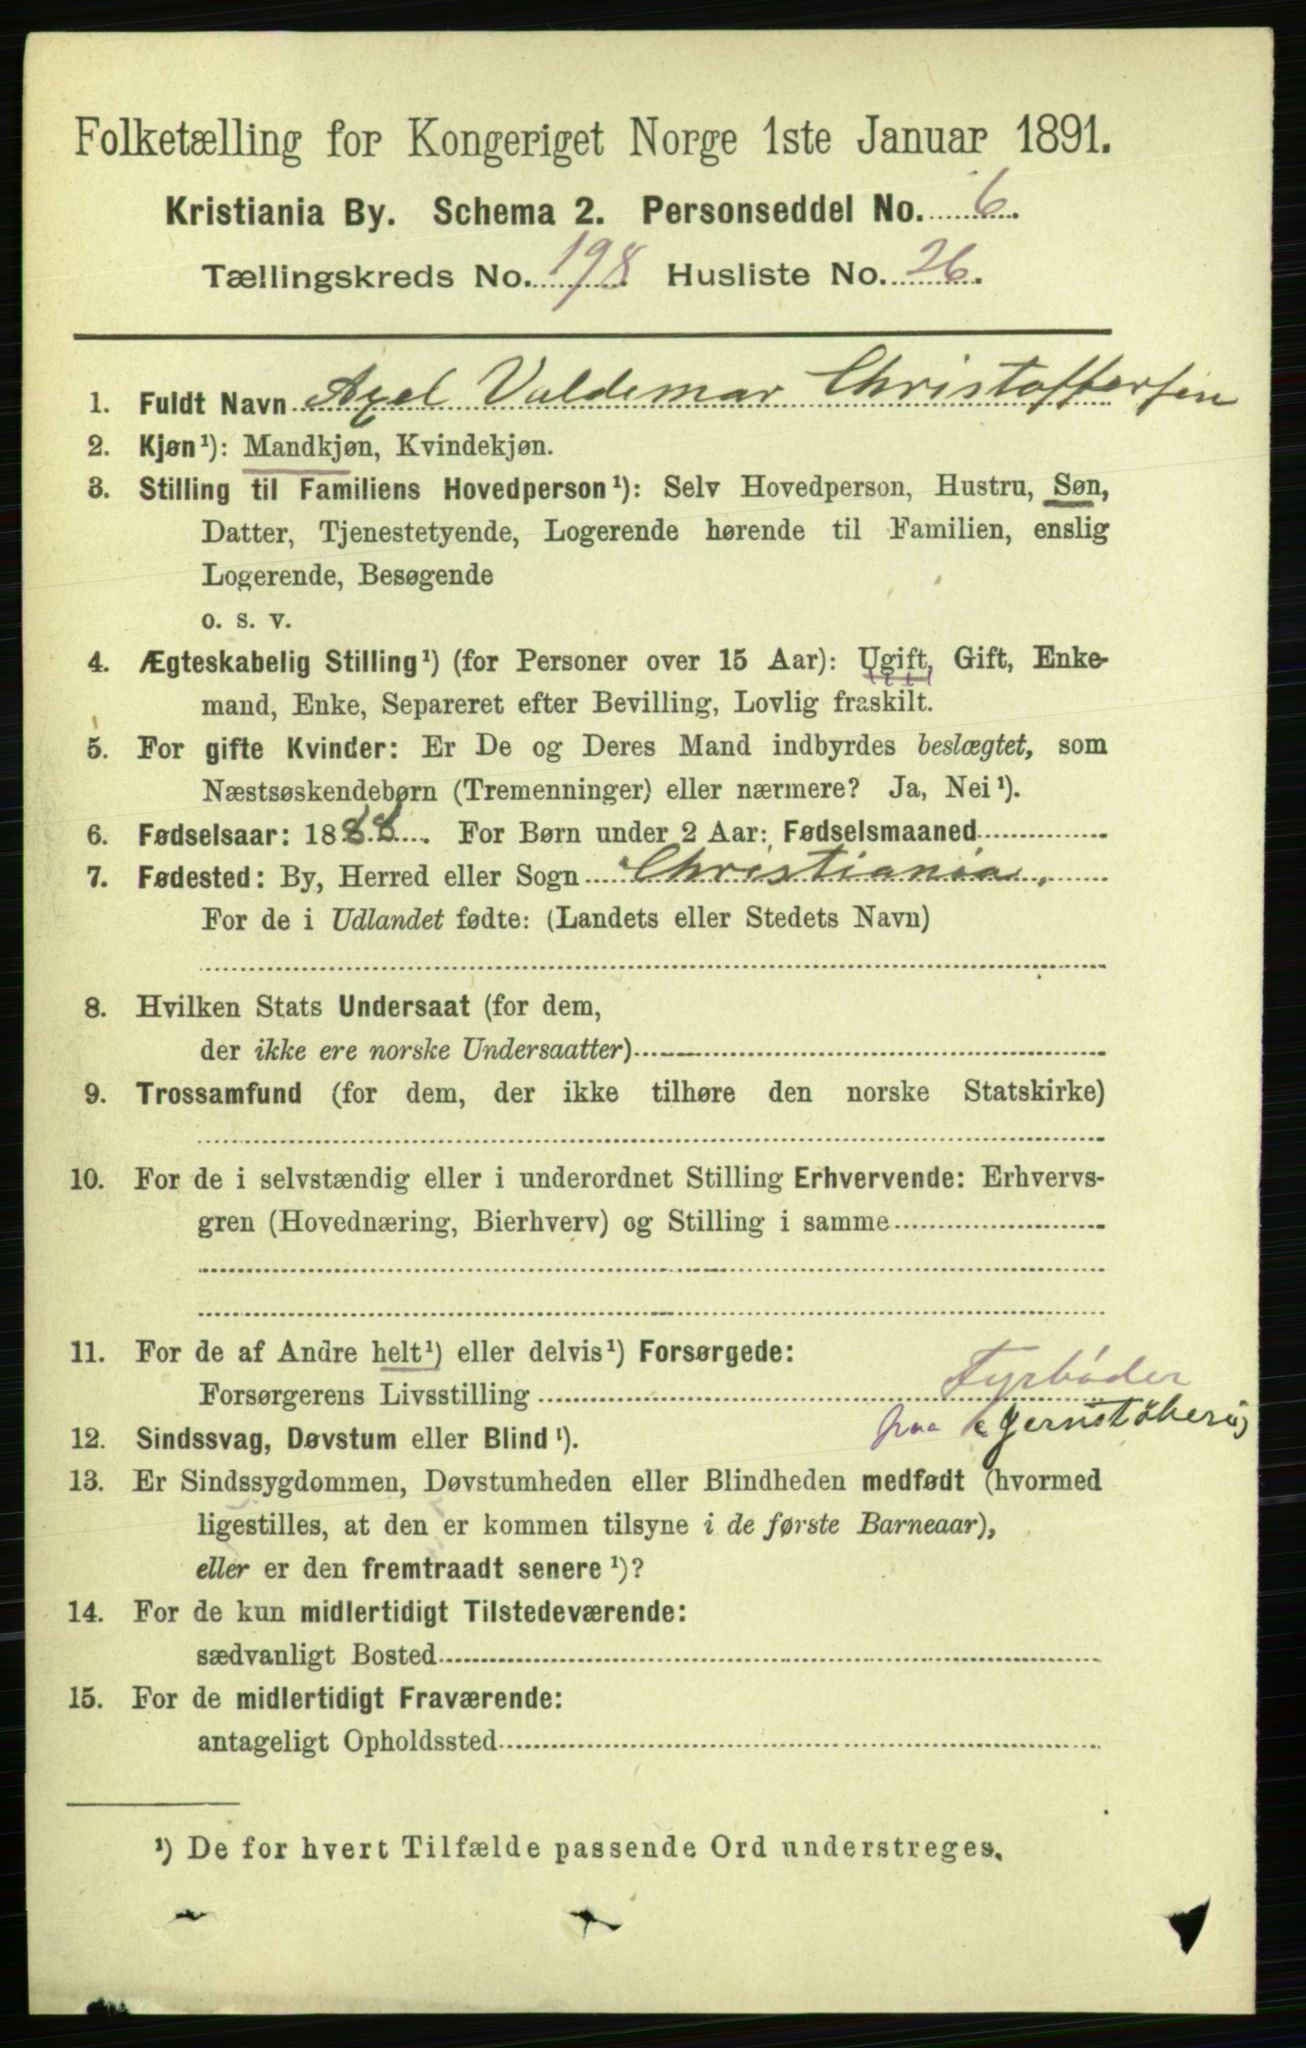 Folketælling for Kongeriget Norge 1ste Januar 1891.
Kristiania By. Schema 2. Personseddel No. 6.
Tællingskreds No. 198 Husliste No. 26.
1. Fuldt Navn Axel Valdemar Christoffersen
2. Kjøn¹): Mandkjøn, Kvindekjøn.
3. Stilling til Familiens Hovedperson¹): Selv Hovedperson, Hustru, Søn,
Datter, Tjenestetyende, Logerende hørende til Familien, enslig
Logerende, Besøgende
o. s. v.
4. Ægteskabelig Stilling¹) (for Personer over 15 Aar): Ugift, Gift, Enke-
mand, Enke, Separeret efter Bevilling, Lovlig fraskilt.
5. For gifte Kvinder: Er De og Deres Mand indbyrdes beslægtet, som
Næstsøskendebørn (Tremenninger) eller nærmere? Ja, Nei¹).
6. Fødselsaar: 1888. For Børn under 2 Aar: Fødselsmaaned
7. Fødested: By, Herred eller Sogn Christiania.
For de i Udlandet fødte: (Landets eller Stedets Navn)
8. Hvilken Stats Undersaat (for dem,
der ikke ere norske Undersaatter)
9. Trossamfund (for dem, der ikke tilhøre den norske Statskirke)
10. For de i selvstændig eller i underordnet Stilling Erhvervende: Erhvervs-
gren (Hovednæring, Bierhverv) og Stilling i samme
11. For de af Andre helt¹) eller delvis¹) Forsørgede:
Forsørgerens Livsstilling Fyrbøder
paa Jernstøberi
12. Sindssvag, Døvstum eller Blind¹).
13. Er Sindssygdommen, Døvstumheden eller Blindheden medfødt (hvormed
ligestilles, at den er kommen tilsyne i de første Barneaar),
eller er den fremtraadt senere¹)?
14. For de kun midlertidigt Tilstedeværende:
sædvanligt Bosted
15. For de midlertidigt Fraværende:
antageligt Opholdssted
¹) De for hvert Tilfælde passende Ord understreges.